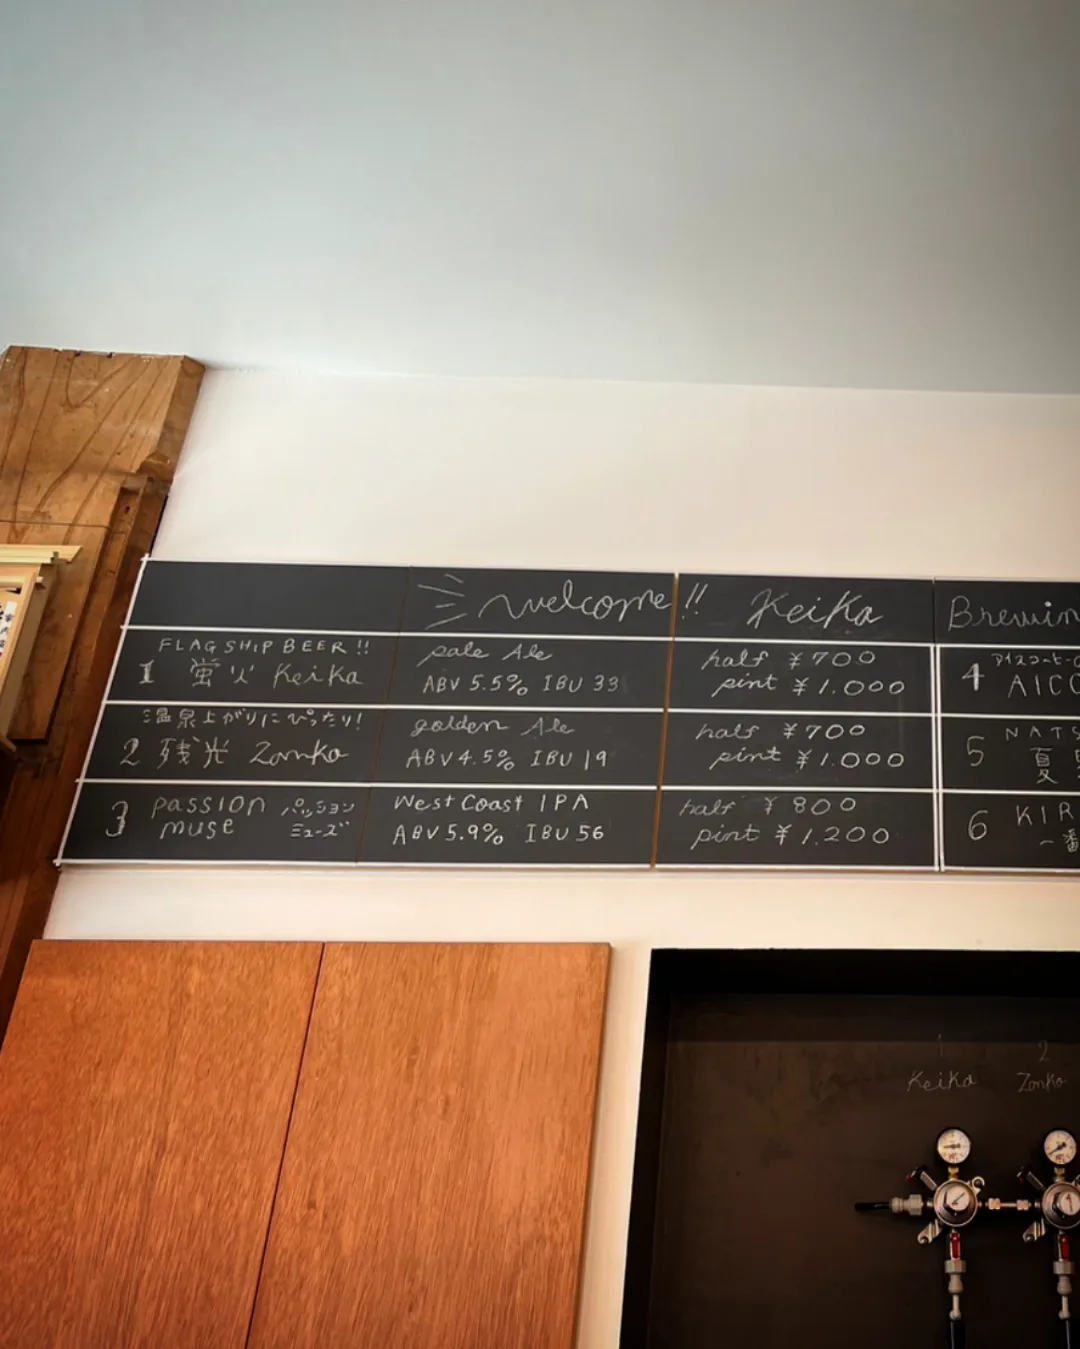 welcome!! Keika Brewin
FLAGSHIP BEER!!
1 蛍火 Keika
pale Ale
ABV 5.5% IBU 33
half ¥700
pint ¥1.000
温泉上がりにぴったり!
2 残光 Zanko
golden Ale
ABV 4.5% IBU 19
half ¥700
pint ¥1.000
3 passion パッション
muse ミューズ
West Coast IPA
ABV 5.9% IBU 56
half ¥800
pint ¥1.200
アイスコート
4 AICO
NATS
5 夏
6 KIR
一番
1 2
Keika Zanko